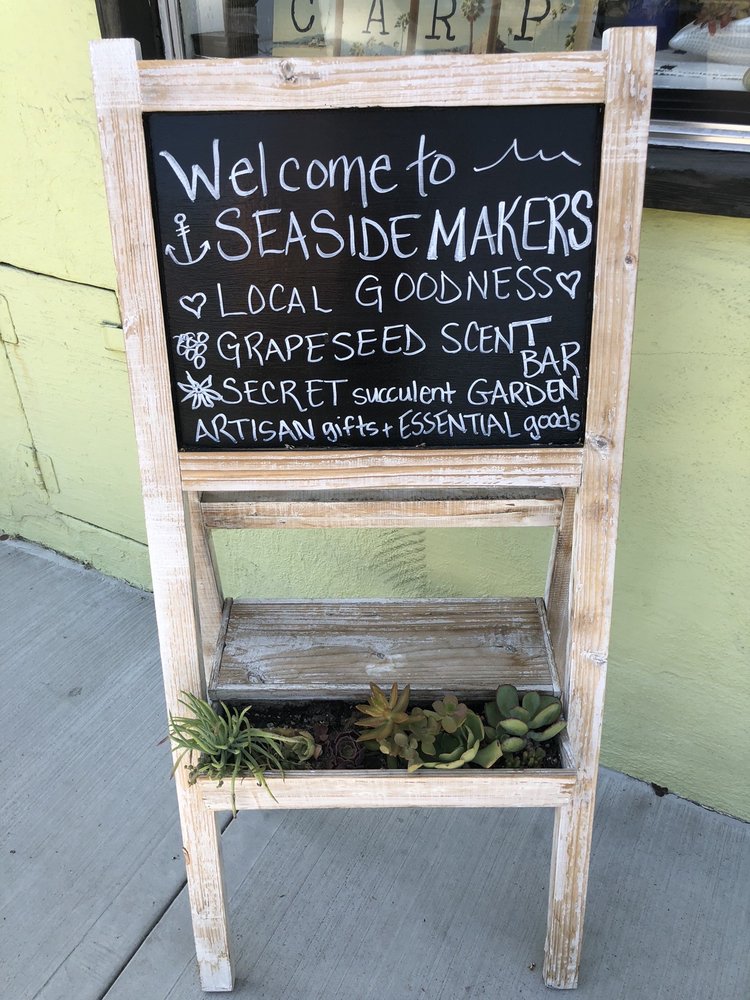 CARP
Welcome to
SEASIDE MAKERS
LOCAL GOODNESS
GRAPESEED SCENT BAR
SECRET succulent GARDEN
ARTISAN gifts + ESSENTIAL goods